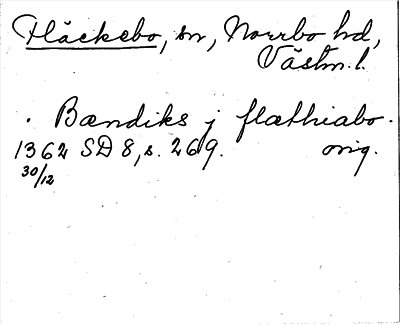 Fläckebo, sn, Norrbo hd,
Västm. l.
. Bændiks j flæthiabo.
1362 SD 8, s. 269. orig.
30/12